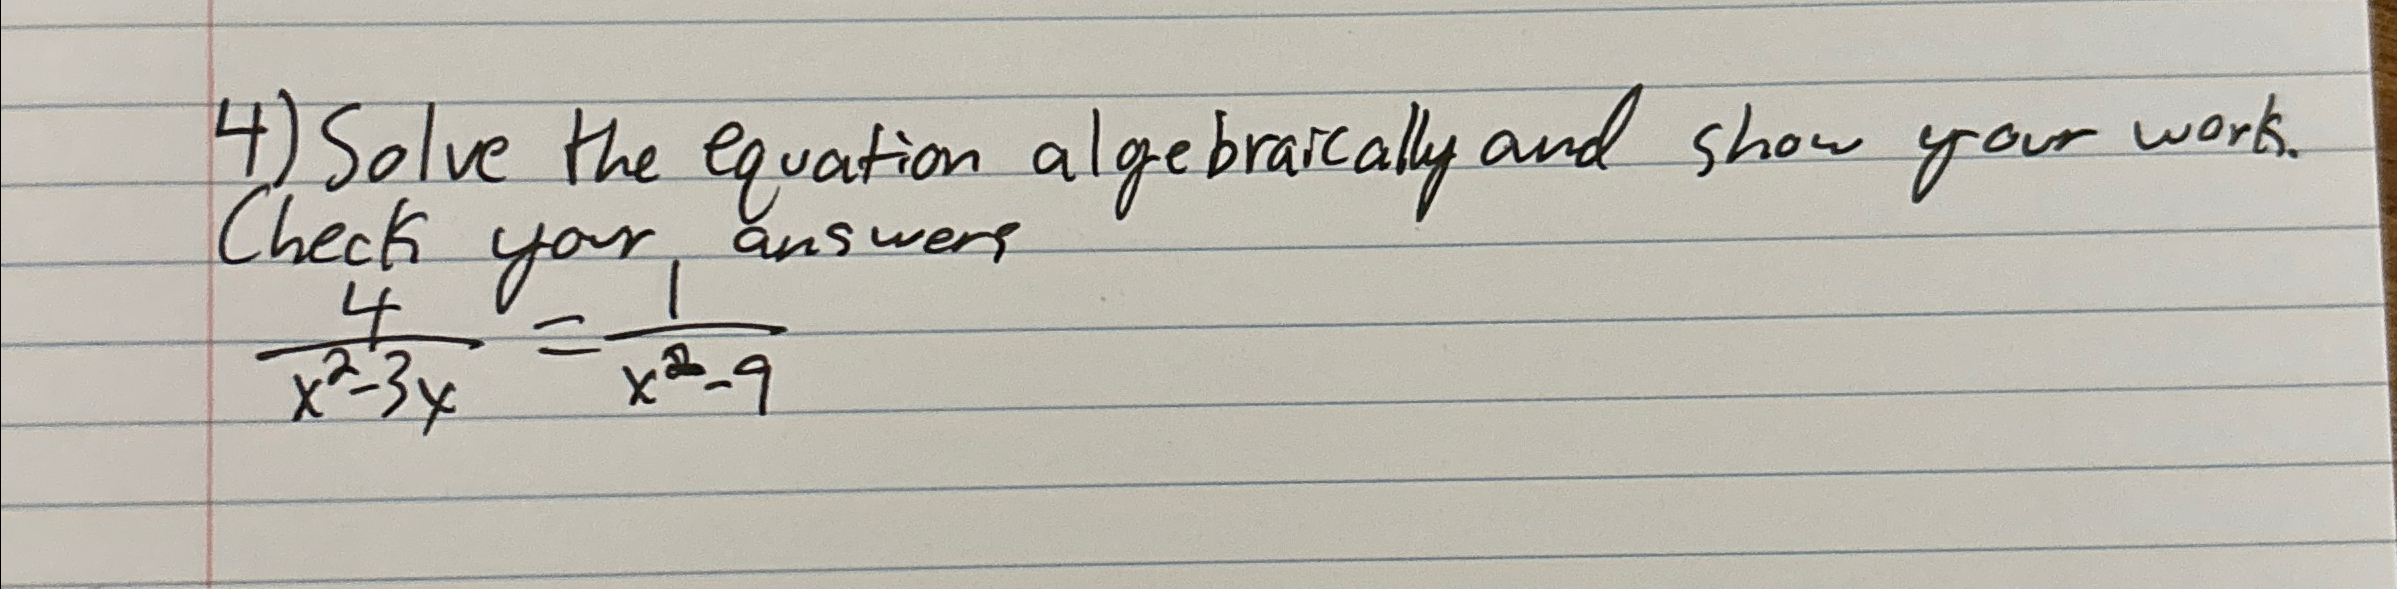 4) Solve the equation algebraically and show your work.
Check your answers
4/(x²-3x) = 1/(x²-9)